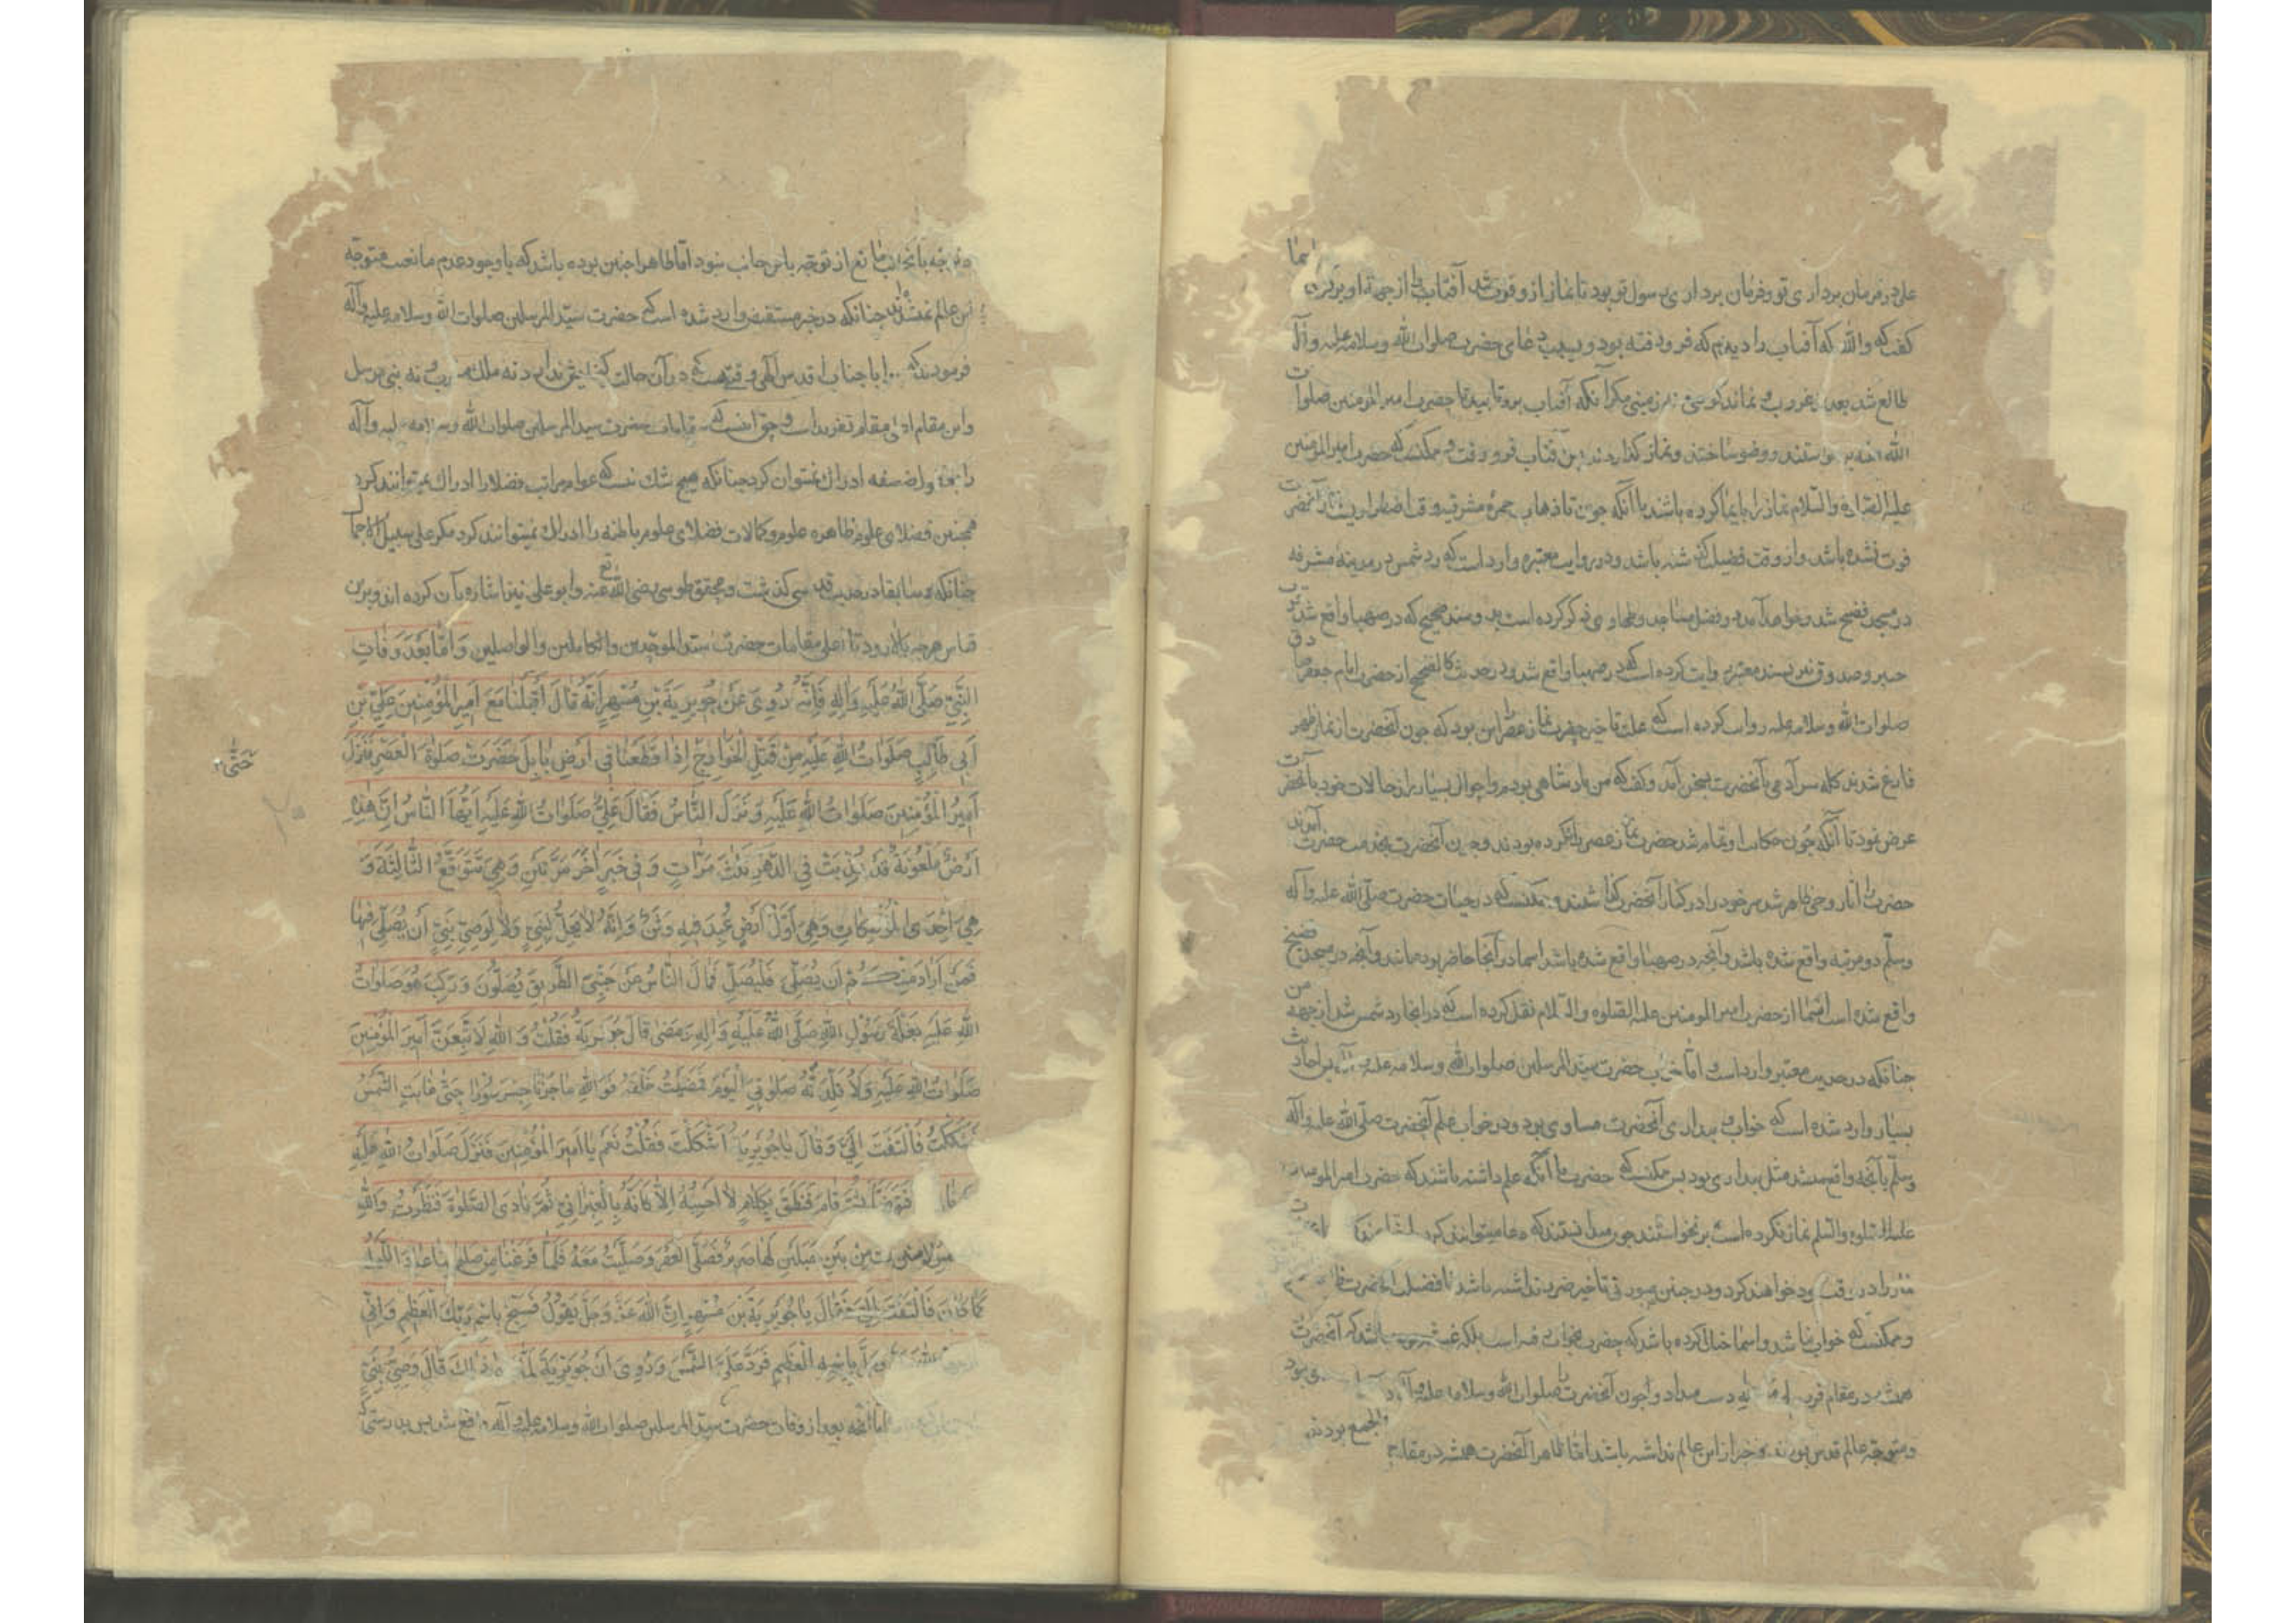 علی در فرمان برداری تو و فرمان برداری رسول تو بود تا نماز از و فوت شد آفتاب را از جهة او بر کردان اسما
کفت که والله که آفتاب را دیدم که فرو رفته بود و بسبب دعای حضرت صلوات الله وسلامه علیه وآله
طالع شد بعد از غروب و نماند کوهی و زمینی مکر آنکه آفتاب برو تابید تا حضرت امیر المومنین صلوات
الله علیه برخواستند و وضو ساختند و نماز کذاردند پس آفتاب فرو رفت و ممکنست که حضرت امیر المومنین
علیه الصلاة والسلام نماز را بایما کرده باشند با آنکه چون تا ذهاب حمرهٔ مشرقیه وقت اضطراریست نماز آنحضرت
فوت نشده باشد و از وقت فضیلت کذشته باشد و در روایت معتبره وارد است که رد شمس در مدینه مشرفه
در مسجد فضیخ شد و خواهد آمد در فضل مساجد و طحاوی ذکر کرده است بدو سند صحیح که در صهبا واقع شد در
خیبر و صدوق نیز بسند معتبر روایت کرده است که در صهبا واقع شد و در حدیث کالصحیح از حضرت امام جعفر صادق
صلوات الله وسلامه علیه روایت کرده است که علت تاخیر حضرت نماز عصر را این بود که چون آنحضرت از نماز ظهر
فارغ شدند کله سر آدمی با آنحضرت بسخن آمد و کفت که من پادشاهی بودم و احوال بسیار از حالات خود بآنحضرت
عرض نمود تا آنکه چون حکایت او تمام شد حضرت نماز عصر را نکرده بودند و چون آنحضرت بخدمت حضرت آمدند
حضرت را آثار وحی ظاهر شد سر خود را در کنار آنحضرت کذاشتند و ممکنست که در حیات حضرت صلی الله علیه وآله
وسلم دو مرتبه واقع شده باشد و آنچه در صهبا واقع شده باشد اسما در آنجا حاضر بوده باشد و آنچه در مسجد فضیخ
واقع شده است اسما از حضرت امیر المومنین علیه الصلوه والسلام نقل کرده است که در اینجا رد شمس شد از جهة من
چنانکه در حدیث معتبر وارد است و اما خواب حضرت سید المرسلین صلوات الله وسلامه علیه وآله پس احادیث
بسیار وارد شده است که خواب و بیداری آنحضرت مساوی بود و در خواب علم آنحضرت صلی الله علیه وآله
وسلم بآنچه واقع میشد مثل بیداری بود پس ممکنست که حضرت با آنکه علم داشته باشند که حضرت امیر المومنین
علیه الصلوة والسلم نماز نکرده است برنخواستند چون میدانستند که دعا میتوانند کرد
نماز را در وقت خود خواهند کرد و در چنین صورتی تاخیر ضرر نداشته باشد تا فضیلت آنحضرت ظاهر
و ممکنست که خواب نباشد و اسما خیال کرده باشد که حضرت بخواب رفته است بلکه باشد که آنحضرت
همیشه در مقام قرب دست میداد و چون آنحضرت صلوات الله وسلامه علیه وآله
و متوجه عالم قدس بودند و خبر از این عالم نداشته باشد اما ظاهرا آنحضرت همیشه در مقام جمع الجمع بودند
توجه بآنجانب مانع از توجه باین جانب نبود اما ظاهرا چنین بوده باشد که با وجود عدم مانعیت متوجه
این عالم نمیشدند چنانکه در خبر مستفیض وارد شده است که حضرت سید المرسلین صلوات الله وسلامه علیه وآله
فرمودند که مرا با جناب اقدس الهی وقتی هست که در آن حالت کنجایش ندارد نه ملک مقرب و نه نبی مرسل
و این مقام ادنی مقام تفرید است و حق اینست که مقامات حضرت سید المرسلین صلوات الله وسلامه علیه وآله
را بغیر واصفه ادراک نمیتوان کرد چنانکه هیچ شک نیست که عوام مراتب فضلا را ادراک نمیتوانند کرد
همچنین فضلای علوم ظاهره علوم و کمالات فضلای علوم باطنه را ادراک نمیتوانند کرد مکر علی سبیل الاجمال
چنانکه سابقا در حدیث قدسی کذشت و محقق طوسی رضی الله تع عنه وابو علی نیز اشاره بآن کرده اند و برین
قیاس هر چه بالا رود تا اعلی مقامات حضرت سید الموحدین والکاملین والواصلین وَاَمّا بَعْدَ وَفاتِ
النَّبِيِّ صَلَّى اللهُ عَلَيْهِ وَآلِهِ فَاِنَّهُ رُوِيَ عَنْ جُوَيْرِيَةَ بْنِ مُسْهِرٍ اَنَّهُ قالَ اَقْبَلْنا مَعَ اَمِيرِ الْمُؤْمِنِينَ عَلِيِّ بْنِ
اَبِي طالِبٍ صَلَواتُ اللهِ عَلَيْهِ مِنْ قَتْلِ الْخَوارِجِ اِذا قَطَعْنا فِي اَرْضِ بابِلَ حَضَرَتْ صَلوةُ الْعَصْرِ فَنَزَلَ
حَتّى
اَمِيرُ الْمُؤْمِنِينَ صَلَواتُ اللهِ عَلَيْهِ وَنَزَلَ النّاسُ فَقالَ عَلِيٌّ صَلَواتُ اللهِ عَلَيْهِ اَيُّهَا النّاسُ اِنَّ هٰذِهِ
اَرْضٌ مَلْعُونَةٌ قَدْ عُذِّبَتْ فِي الدَّهْرِ ثَلاثَ مَرّاتٍ وَفِي خَبَرٍ آخَرَ مَرَّتَيْنِ وَهِيَ تَتَوَقَّعُ الثّالِثَةَ وَ
هِيَ اِحْدَى الْمُؤْتَفِكاتِ وَهِيَ اَوَّلُ اَرْضٍ عُبِدَ فِيهِ وَثَنٌ وَاِنَّهُ لا يَحِلُّ لِنَبِيٍّ وَلا لِوَصِيِّ نَبِيٍّ اَنْ يُصَلِّيَ فِيها
فَمَنْ اَرادَ مِنْكُمْ اَنْ يُصَلِّيَ فَلْيُصَلِّ فَمالَ النّاسُ عَنْ جَنْبَيِ الطَّرِيقِ يُصَلُّونَ وَرَكِبَ هُوَ صَلَواتُ
اللهِ عَلَيْهِ بَغْلَةَ رَسُولِ اللهِ صَلَّى اللهُ عَلَيْهِ وَآلِهِ وَمَضى قالَ جُوَيْرِيَةُ فَقُلْتُ وَاللهِ لَاَتَّبِعَنَّ اَمِيرَ الْمُؤْمِنِينَ
صَلَواتُ اللهِ عَلَيْهِ وَلَاُقَلِّدَنَّهُ صَلوتِيَ الْيَوْمَ فَمَضَيْتُ خَلْفَهُ فَوَاللهِ ما جُزْنا جِسْرَ سُوراء حَتّى غابَتِ الشَّمْسُ
فَشَكَكْتُ فَالْتَفَتَ اِلَيَّ وَقالَ يا جُوَيْرِيَةُ اَشَكَكْتَ فَقُلْتُ نَعَمْ يا اَمِيرَ الْمُؤْمِنِينَ فَنَزَلَ صَلَواتُ اللهِ عَلَيْهِ
فَتَوَضَّأَ ثُمَّ قامَ فَنَطَقَ بِكَلامٍ لا اَحْسِبُهُ اِلّا كَاَنَّهُ بِالْعِبْرانِيِّ ثُمَّ نادى الصَّلوةَ فَنَظَرْتُ وَاللهِ
مِنْ بَيْنِ جَبَلَيْنِ لَها صَرِيرٌ فَصَلَّى الْعَصْرَ وَصَلَّيْتُ مَعَهُ فَلَمّا فَرَغْنا مِنْ صَلوتِنا عادَ اللَّيْلُ
كَما كانَ فَالْتَفَتَ اِلَيَّ فَقالَ يا جُوَيْرِيَةَ بْنَ مُسْهِرٍ اِنَّ اللهَ عَزَّ وَجَلَّ يَقُولُ فَسَبِّحْ بِاسْمِ رَبِّكَ الْعَظِيمِ وَاِنِّي
بِاسْمِهِ الْعَظِيمِ فَرَدَّ عَلَيَّ الشَّمْسَ وَرُوِيَ اَنَّ جُوَيْرِيَةَ لَمّا ذٰلِكَ قالَ وَصِيُّ نَبِيٍّ
اما آنچه بعد از وفات حضرت سید المرسلین صلوات الله وسلامه علیه وآله واقع شد پس بدرستی که